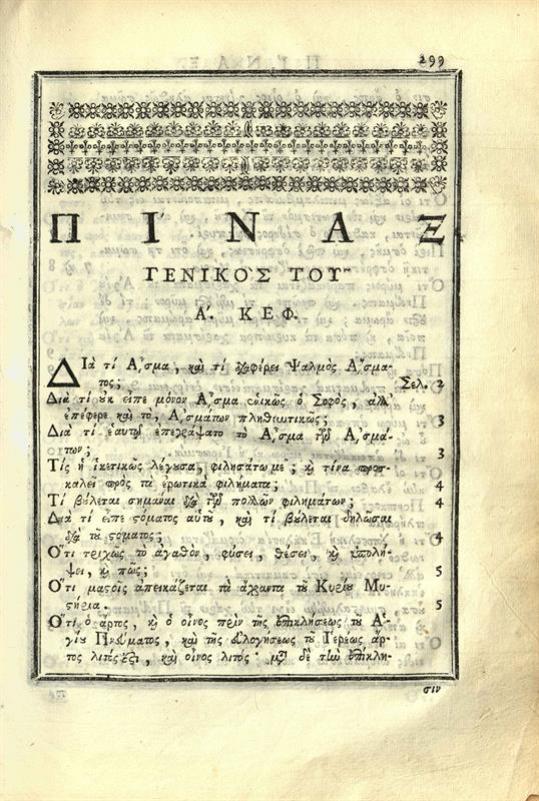 299
ΠΙ´ΝΑΞ
ΓΕΝΙΚΟ`Σ ΤΟΥ῀
Α'. ΚΕΦ.
ΔΙὰ τί Α῏σμα, καὶ τί διαφέρει Ψαλμὸς Α῎σμα-
τος; Σελ. 2
Διὰ τί οὐκ εἶπε μόνον Α῏σμα ἑνικῶς ὁ Σοφὸς, ἀλλ'
ἐπέφερε καὶ τὸ, Α᾿σμάτων πληθυντικῶς; 3
Διὰ τί ἑαυτῷ ἐπεγράψατο τὸ Α῏σμα τῶν Α᾿σμά-
των; 3
Τίς ἡ ἱκετικῶς λέγουσα, φιλησάτω με; καὶ τίνα προσ-
καλεῖ πρὸς τὰ ἐρωτικὰ φιλήματα; 4
Τί βούλεται σημᾶναι διὰ τῶν πολλῶν φιλημάτων; 4
Διὰ τί εἶπε στόματος αὐτοῦ, καὶ τί βούλεται δηλῶσαι
διὰ τοῦ στόματος; 4
Ο῞τι τριχῶς τὸ ἀγαθὸν, φύσει, θέσει, καὶ ὑπολή-
ψει, καὶ πῶς; 5
Ο῞τι μαστοῖς ἀπεικάζεται τὰ ἄχραντα τοῦ Κυρίου Μυ-
στήρια. 5
Ο῞τι ὁ ἄρτος, καὶ ὁ οἶνος πρὶν τῆς ἐπικλήσεως τοῦ Α῾-
γίου Πνεύματος, καὶ τῆς εὐλογήσεως τοῦ Γερέως ἄρ-
τος λιτός ἐστι, καὶ οἶνος λιτός· μετὰ δὲ τὴν ἐπίκλη-
σιν